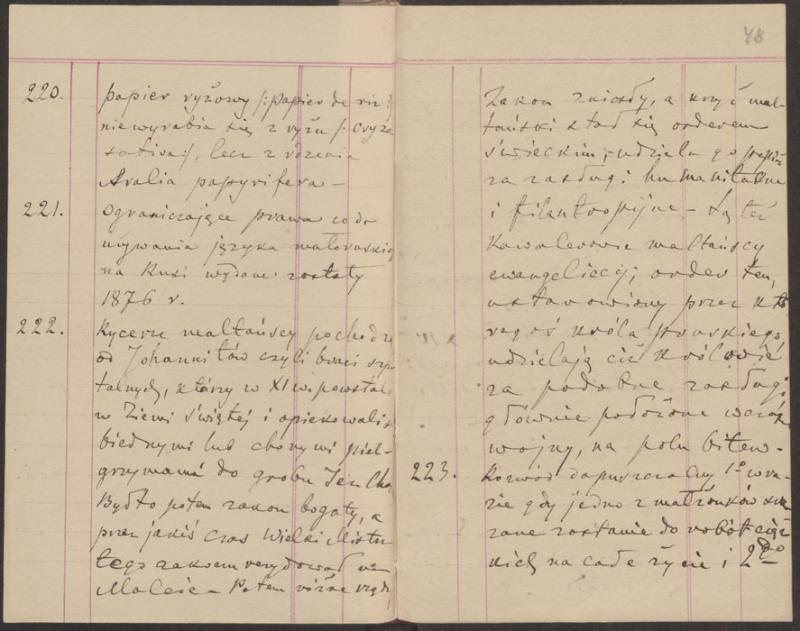 48
220. papier ryżowy /: papier de riz :/
nie wyrabia się z ryżu /: oryza
sativa :/, lecz z rdzenia
Aralia papyrifera –
221. ograniczające prawa co do
używania języka małoruskiego
na Rusi wydane zostały
1876 r.
222. Rycerze maltańscy pochodzą
od Johannitów czyli braci szpi
talnych, którzy w XI w. powstali
w Ziemi Świętej i opiekowali się
biednymi lub chorymi piel-
grzymami do grobu Jezu Chr.
Był to potem zakon bogaty, a
przez jakiś czas Wielki Mistrz
tego zakonu rezydował na
Malcie – Potem różne rządy
Zakon zniosły, a krzyż mal-
tański stał się orderem
świeckim; udziela go papież
za zasługi humanitarne
i filantropijne – Są też
Kawalerowie maltańscy
ewangeliccy; order ten,
ustanowiony przez któ
regoś króla pruskiego,
udzielają ciż królowie
za podobne zasługi,
głównie położone wczas
wojny, na polu bitew –
223. Rozwód dopuszczalny 1º w ra-
zie gdy jedno z małżonków ska
zane zostanie do robót cięż
kich na całe życie i 2do